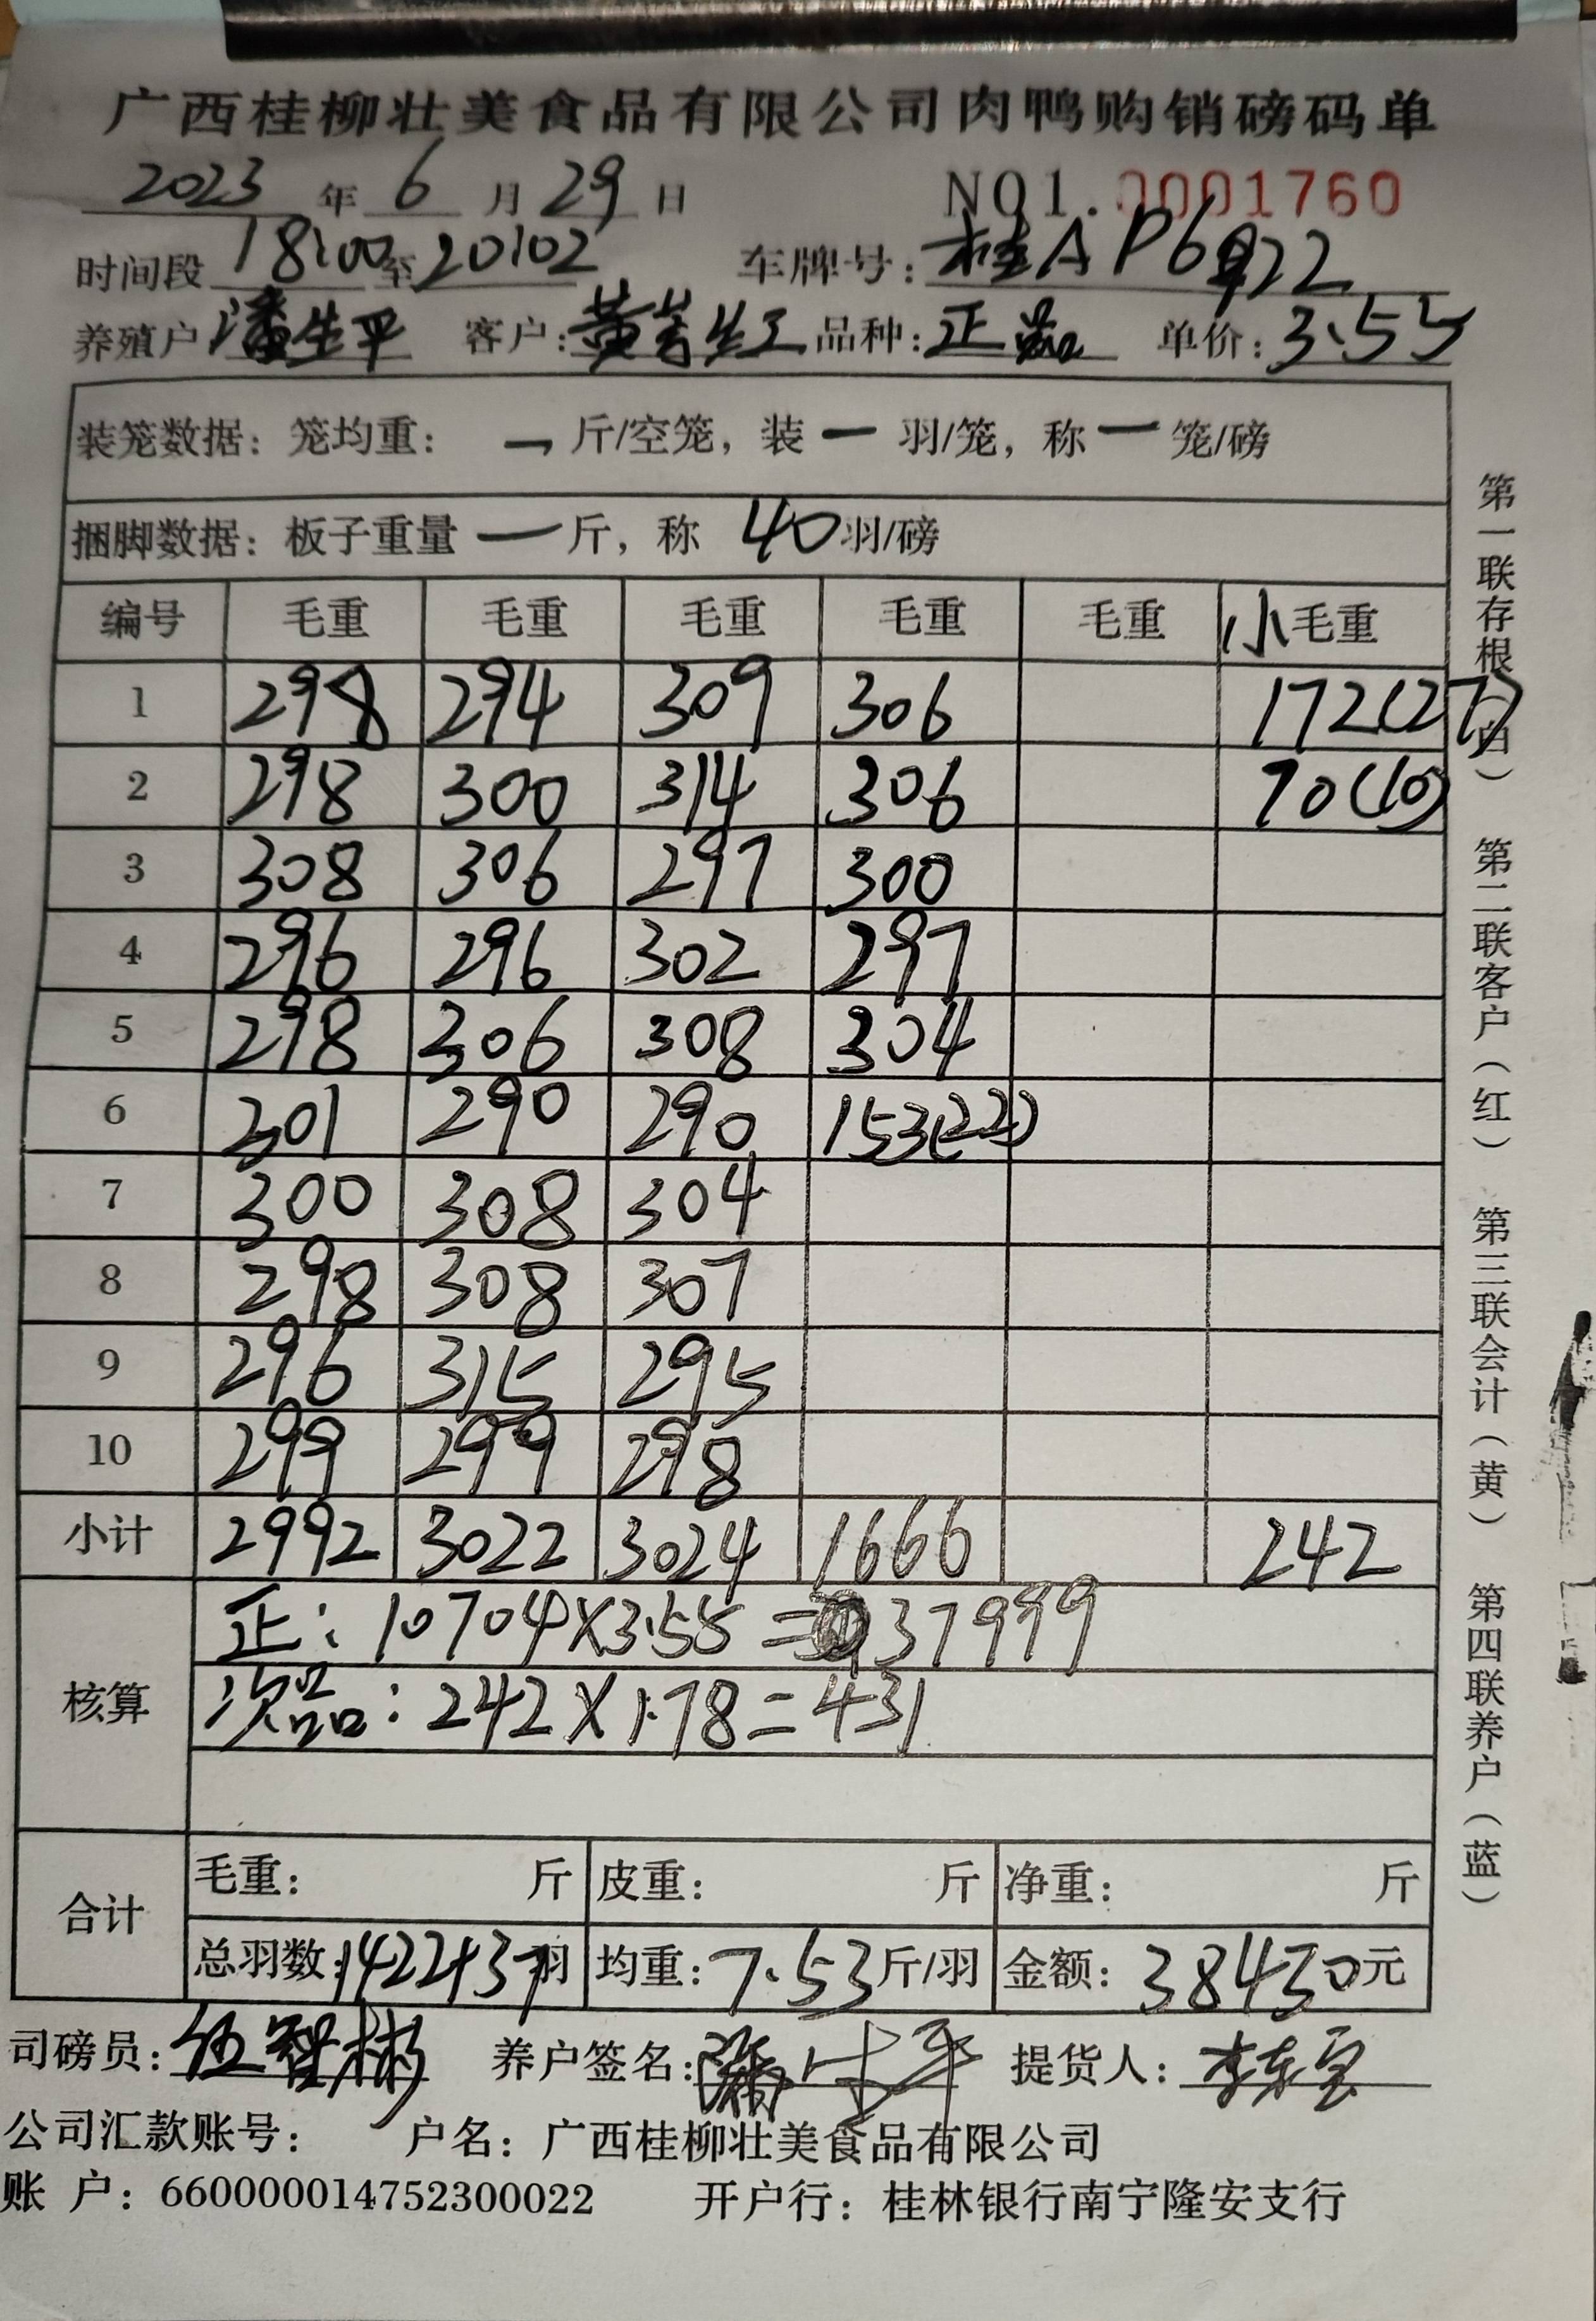 广西桂柳壮美食品有限公司肉鸭购销磅码单
2023 年 6 月 29 日 NO1.0001760
时间段 18:00 至 20:02 车牌号: 桂A P6922
养殖户 潘生平 客户: 黄 红 品种: 正品 单价: 3.55
装笼数据: 笼均重: 一 斤/空笼, 装 一 羽/笼, 称 一 笼/磅
捆脚数据: 板子重量 一 斤, 称 40 羽/磅
编号 毛重 毛重 毛重 毛重 毛重 小毛重
1 298 294 309 306 172(27)
2 298 300 314 306 70(10)
3 308 306 297 300
4 296 296 302 297
5 298 306 308 304
6 301 290 290 153(22)
7 300 308 304
8 298 308 307
9 296 315 295
10 299 299 298
小计 2992 3022 3024 1666 242
核算
正: 10704×3.55=37999
次品: 242×1.78=431
合计
毛重: 斤 皮重: 斤 净重: 斤
总羽数: 1422+37羽 均重: 7.53斤/羽 金额: 38430元
司磅员: 伍智彬 养户签名: 潘生平 提货人: 李东
公司汇款账号: 户名: 广西桂柳壮美食品有限公司
账 户: 660000014752300022 开户行: 桂林银行南宁隆安支行
第一联存根(白) 第二联客户(红) 第三联会计(黄) 第四联养户(蓝)